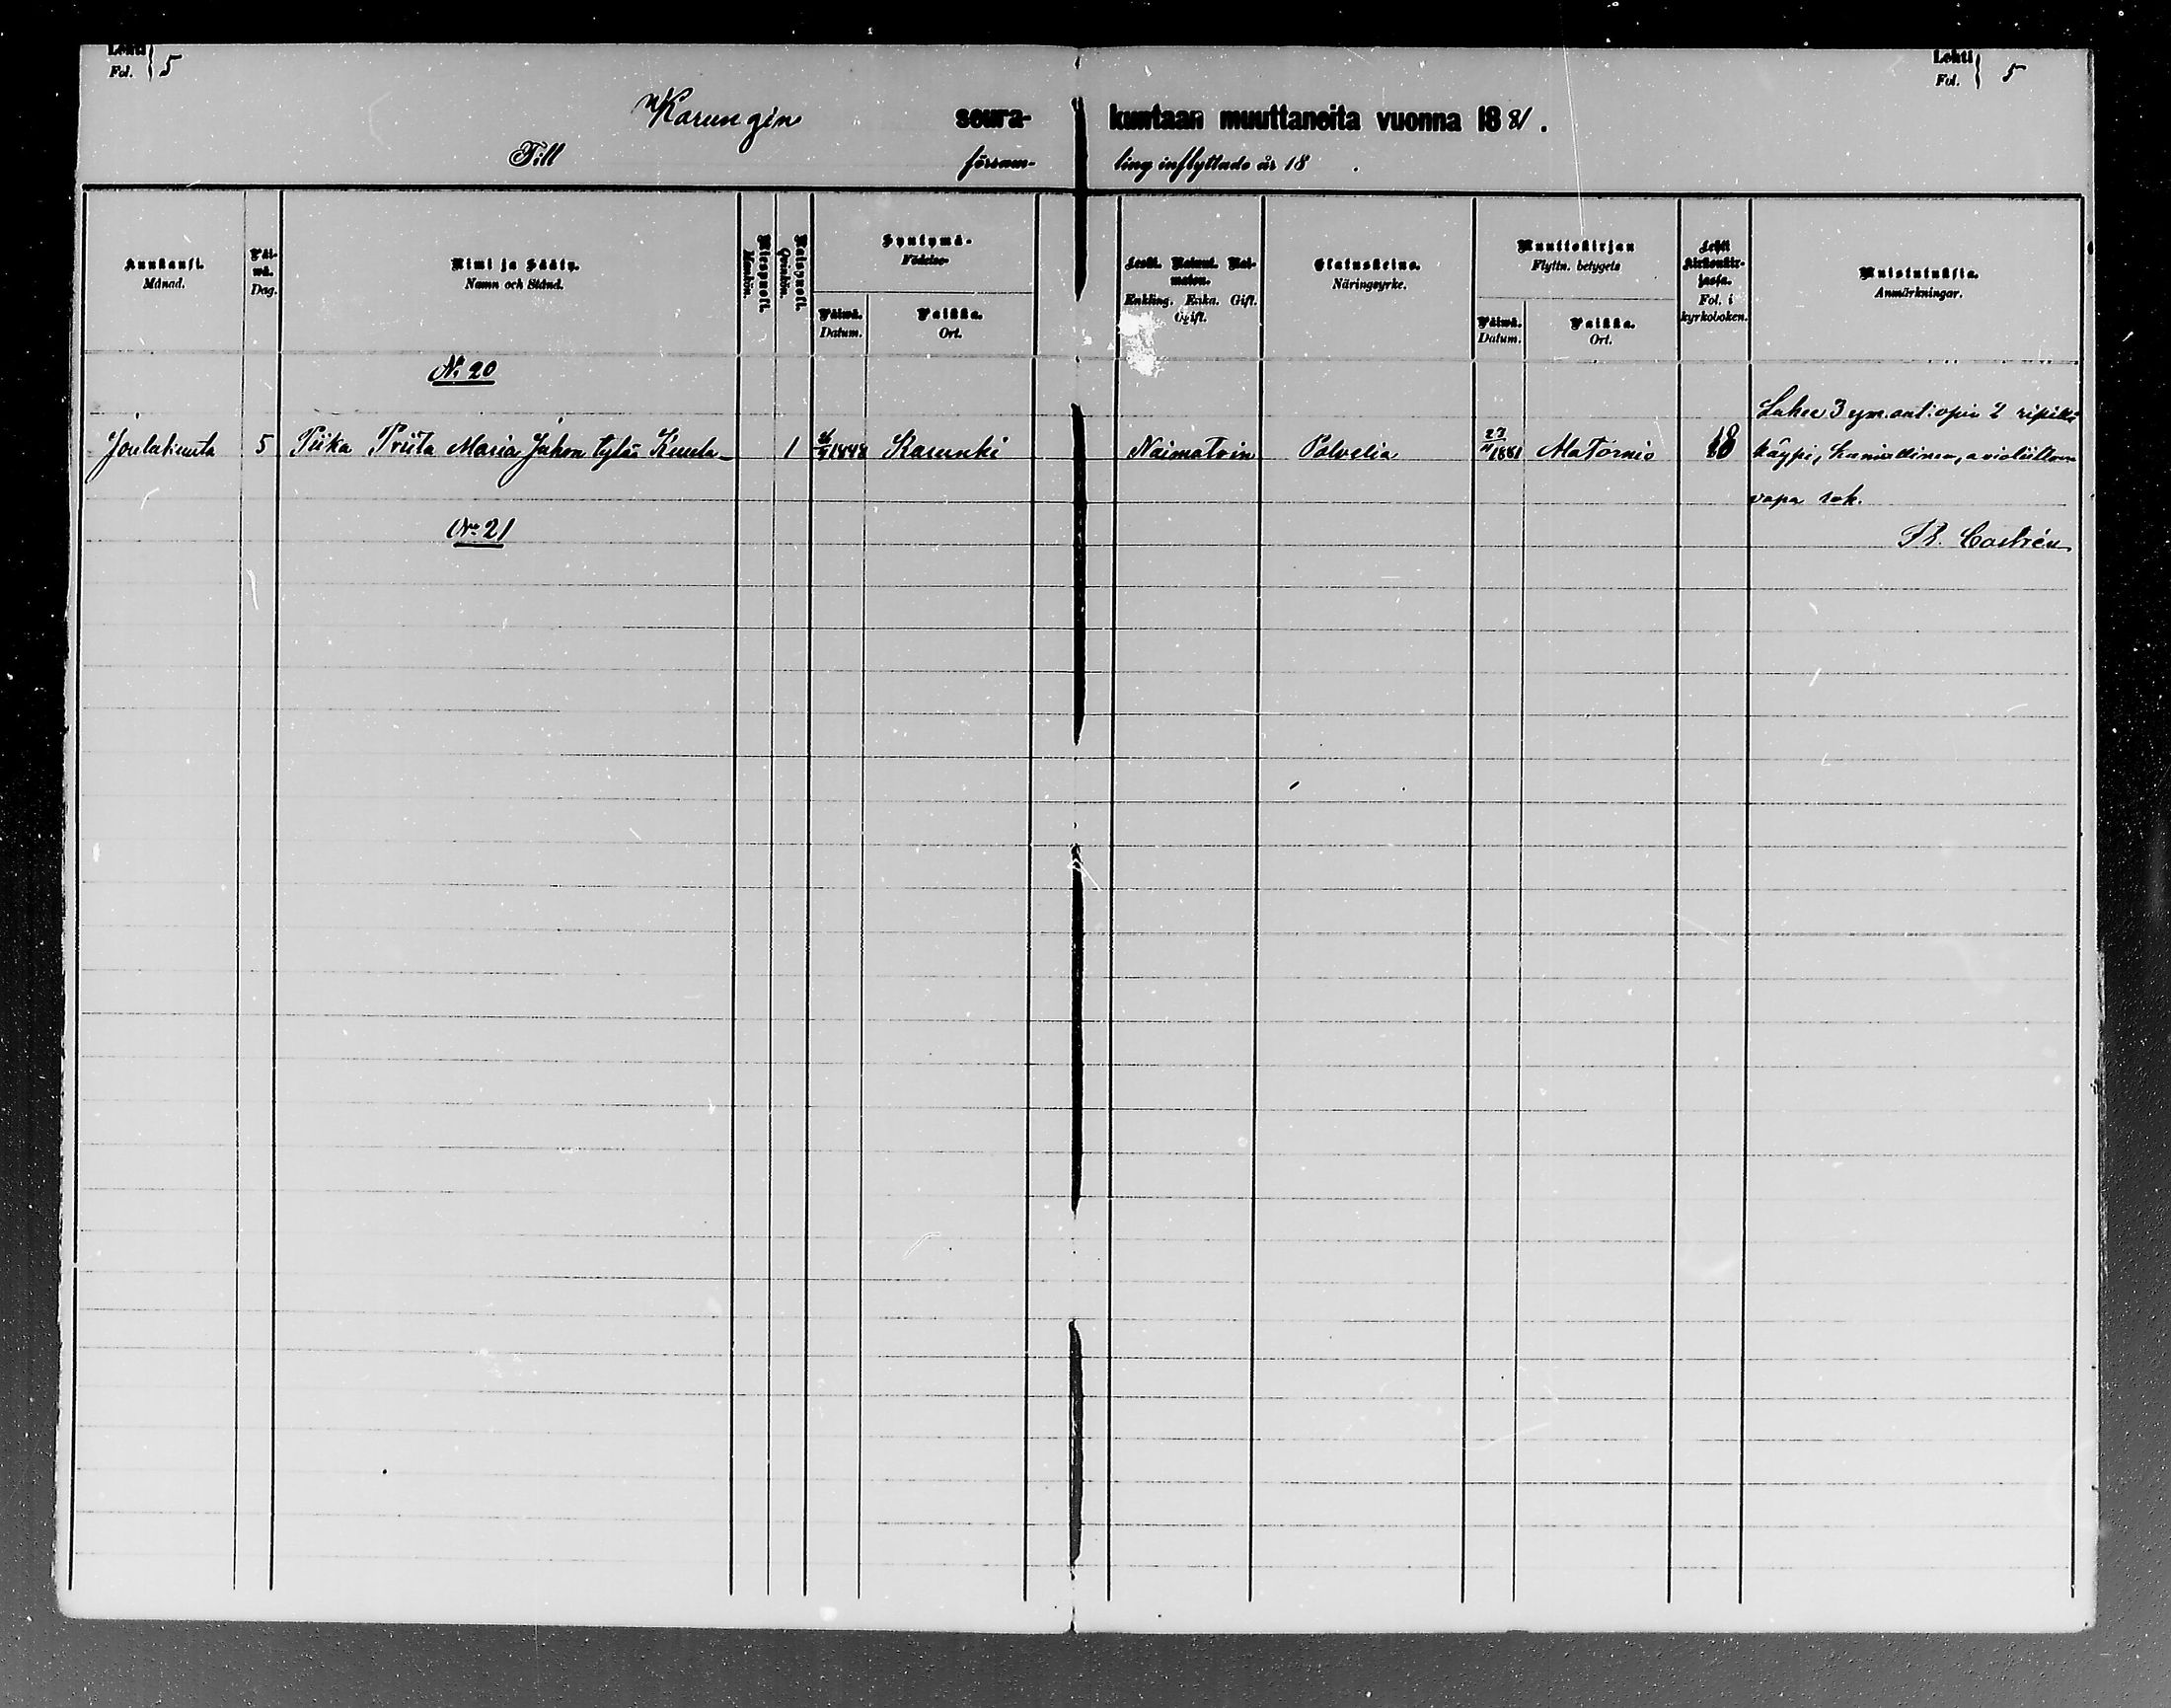 Lehti Fol. 5
Lehti Fol. 5
Karungin seura- kuntaan muuttaneita vuonna 1881.
Till försam- ling inflyttade år 18 .
Kuukausi. Månad.
Päi-wä. Dag.
Nimi ja Sääty. Namn och Stånd.
Miespuoli. Mankön.
Naispuoli. Qvinkön.
Syntymä- Födelse-
Päiwä. Datum.
Paikka. Ort.
Leski. Nainut. Nai-maton. Enkling. Enka. Gift. Ogift.
Elatuskeino. Näringsyrke.
Muuttokirjan Flyttn. betygets
Päiwä. Datum.
Paikka. Ort.
Lehti kirkonkir-jassa. Fol. i kyrkoboken.
Muistutuksia. Anmärkningar.
No 20
Joulukuuta 5 Piika Priita Maria Juhon tytär 1 1848 Karunki Naimatoin Palvelia 27/11 1881 AlaTornio 18
Lukee 3 ym. aut: opin 2 ripillä
käypi, kunniallinen, avioliittoon
vapa rok.
No 21
Castrén